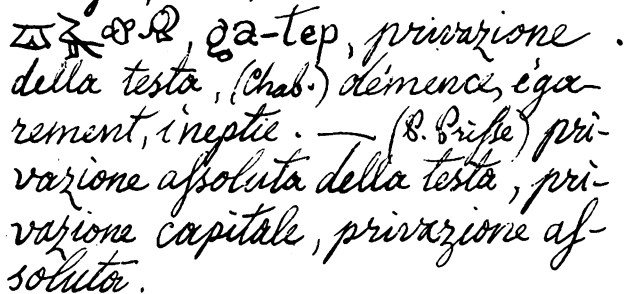 , ga-tep, privazione
della testa, (Chab.) démence, éga-
rement, ineptie. — (P. Prisse) pri-
vazione assoluta della testa, pri-
vazione capitale, privazione as-
soluta.